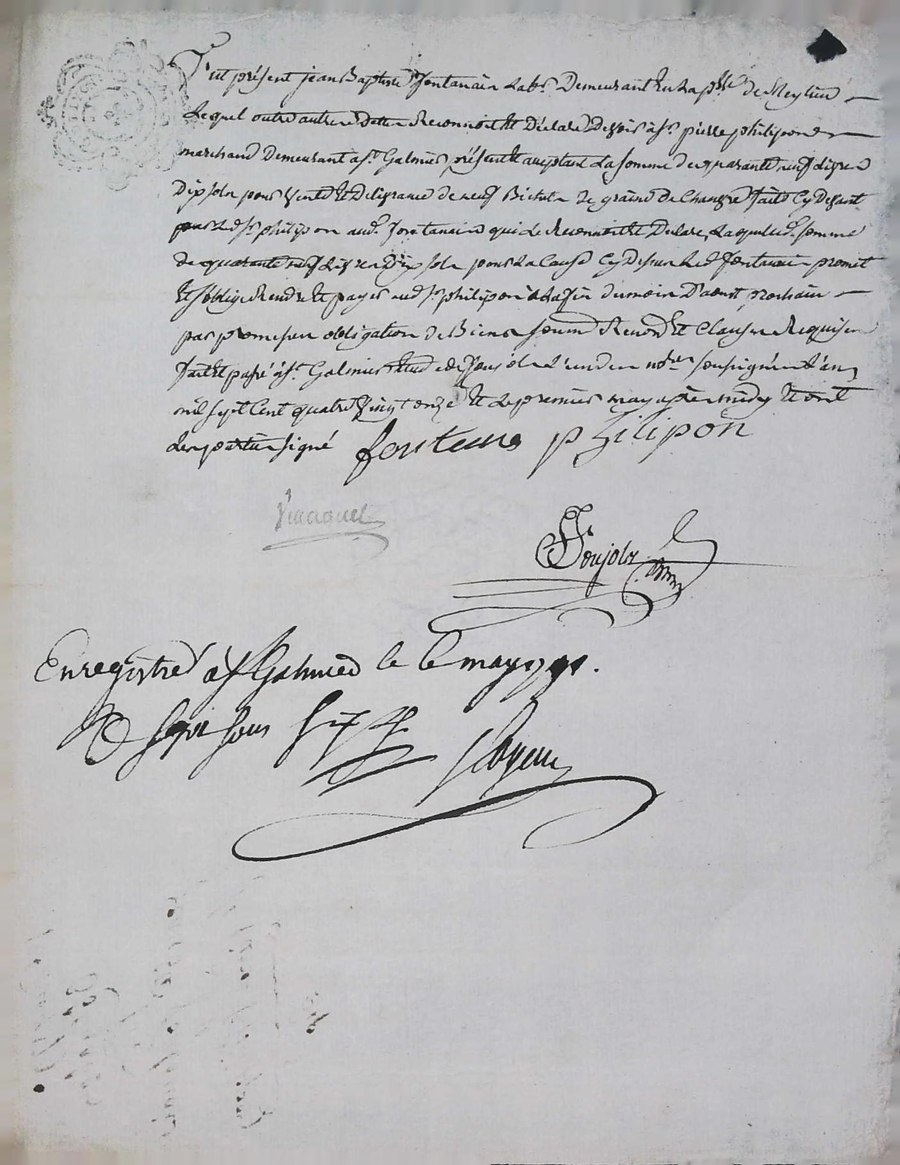 fut présent jean Baptiste fontanain Labr Demeurant En la psse de
Lequel outre autres dettes Reconnoit Et Declare Devoir à sr pierre philipon
marchand Demeurant a st Galmier présent Et aceptant La somme de quarante neuf Livres
Dix sols pour Vente Et Delivrance de neuf Bichets de grains faite Cy devant
par Led sr philipon aud. fontanain qui Le Reconnoit Et Declare, Laquelle somme
de quarante neuf Livres Dix sols pour La Cause Cy Dessus Led fontanain promet
Et soblige Rendre Et payer aud sr philipon à La fin du mois D'aoust prochain
par promesses obligation de Biens soumis Renons Et Clauses Requises
fait Et passé à st Galmier Etude de L'un des nores soussignés L'an
mil sept Cent quatre Vingt onze Et Le premier may apres midy Et ont
Les parties signé fontenes philipon
Enregistré à st Galmier le may 1791.
sous